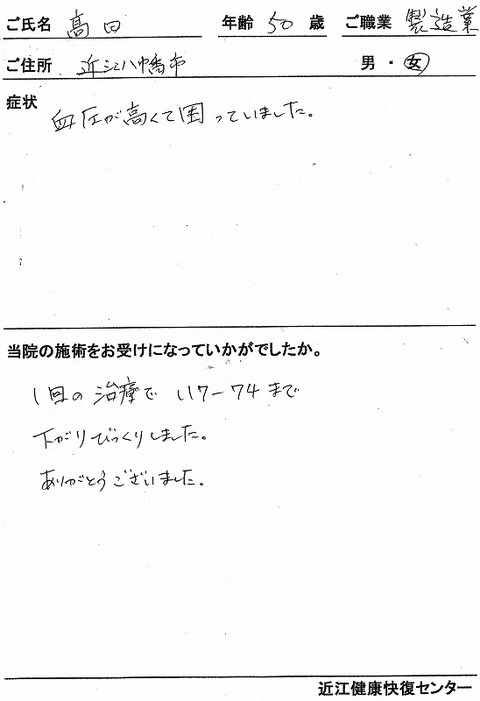 ご氏名 高田 年齢 50 歳 ご職業 製造業
ご住所 近江八幡市 男・女
症状
血圧が高くて困っていました。
当院の施術をお受けになっていかがでしたか。
1回の治療で 117-74まで
下がりびっくりしました。
ありがとうございました。
近江健康快復センター